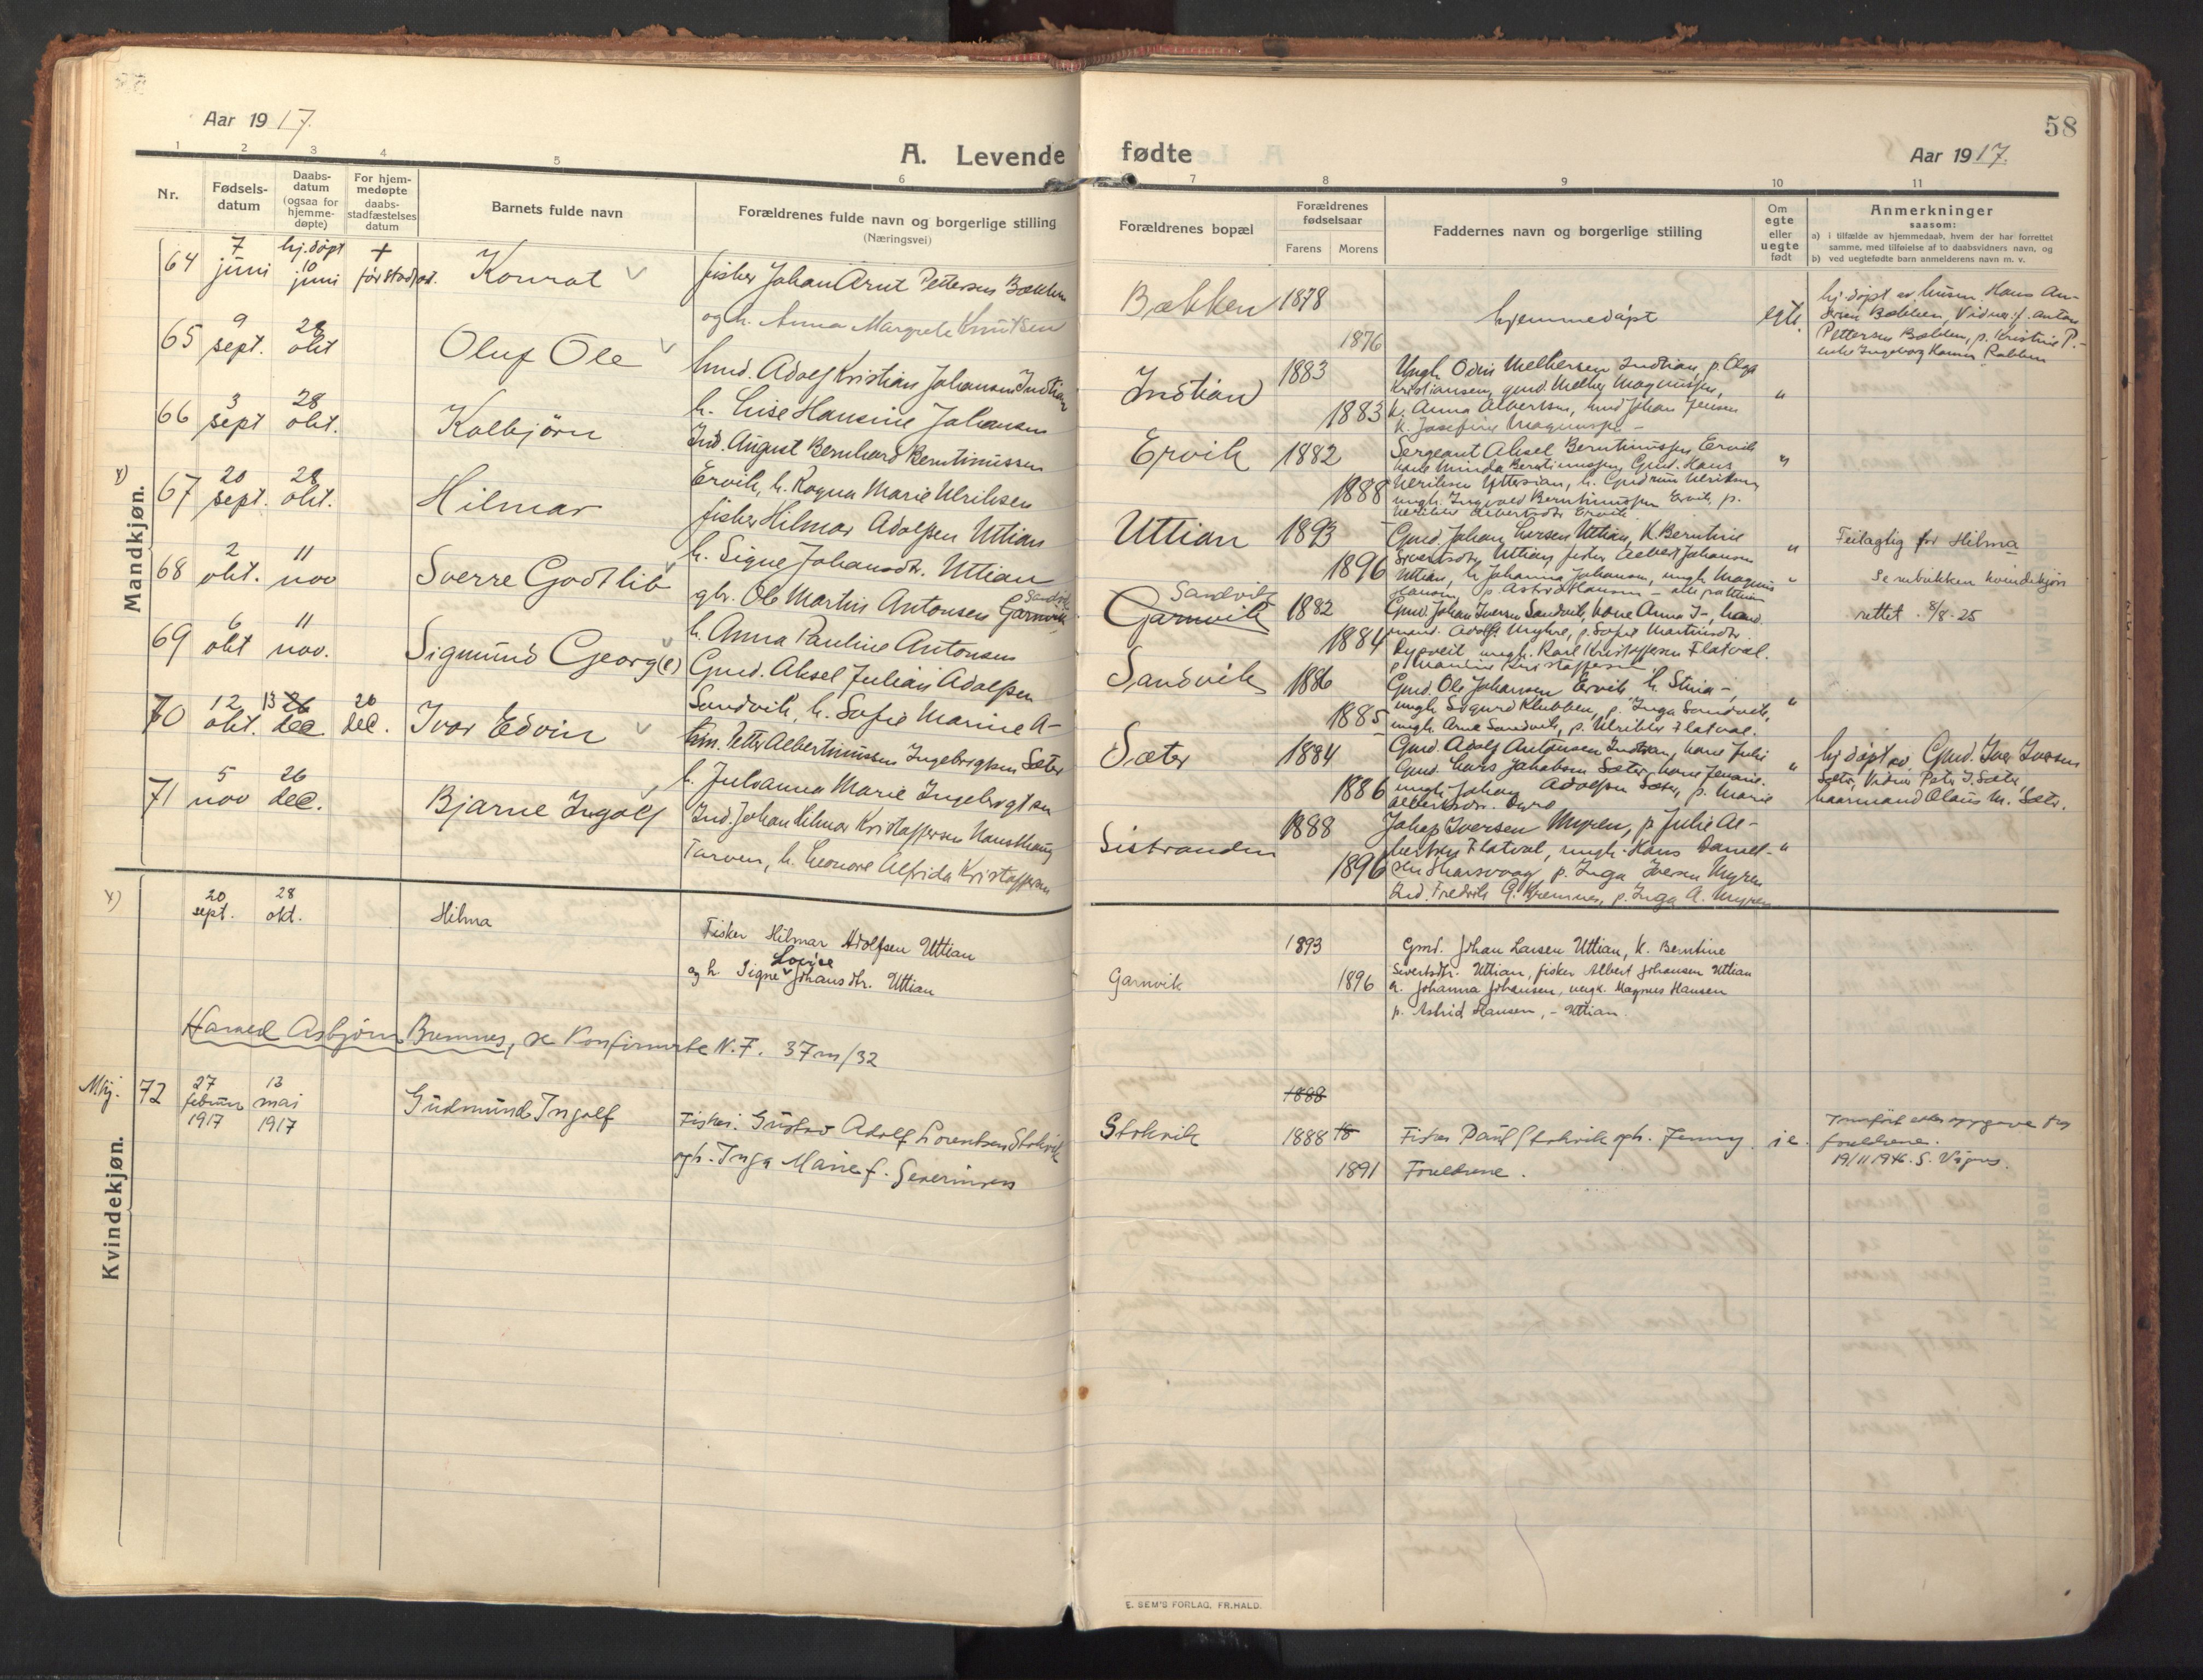 Aar 1917.
A. Levende
1 2 3 4 5 6
Nr.
Fødsels-
datum
Daabs-
datum
(ogsaa for
hjemme-
døpte)
For hjem-
medøpte
daabs-
stadfæstelses
datum
Barnets fulde navn
Forældrenes fulde navn og borgerlige stilling
(Næringsvei)
Mandkjøn.
64 7 juni hj. døpt 10 juni + før stadf. Konrat
fisker Johan Arnt Pettersen Bækken
og h. Anna Margrete Knutsen
65 9 sept. 28 okt Oluf Ole
Gmd. Adolf Kristian Johansen Indtian
h. Lise Hansine Johansen
66 3 sept 28 okt. Kolbjørn
Ind. August Bernhard Berntinussen
Ervik, h. Ragna Marie Ulriksen
x) 67 20 sept. 28 okt. Hilmar
fisker Hilmar Adolfsen Uttian
h. Signe Johansdtr. Uttian
68 2 okt. 11 nov Sverre Godtlib
gbr. Ole Martin Antonsen Garnvik
Sandvik
h. Anna Pauline Antonsen
69 6 okt 11 nov. Sigmund Georg(e)
Gmd. Aksel Julian Adolfsen
Sandvik, h. Sofie Marine A-
70 12 okt. 13 26 dec 26 dec. Ivar Edvin
Petter Albertinussen Ingebrigtsen Sæter
h. Julianna Marie Ingebrigtsen
71 5 nov 26 dec. Bjarne Ingolf
Ind. Johan Hilmar Kristoffersen
Tarven, h. Leonore Alfrida Kristoffersen
x) 20 sept. 28 okt. Hilma
Fisker Hilmar Adolfsen Uttian
Lovise
og h. Signe Johansdtr. Uttian
Harald Asbjørn Bremnes, se Konfirmerte N.F. 37m/32
Kvindekjøn.
M.kj. 72 27 februar 1917 13 mai 1917 Gudmund Ingolf
Fisker: Gustav Adolf Lorentsen Stokvik
og h. Inga Marie f. Severinsen
58
fødte
Aar 1917.
7 8 9 10 11
Forældrenes bopæl
Forældrenes
fødselsaar
Farens Morens
Faddernes navn og borgerlige stilling
Om
egte
eller
uegte
født
Anmerkninger
saasom:
a) i tilfælde av hjemmedaab, hvem der har forrettet
samme, med tilføielse af to daabsvidners navn, og
b) ved uegtefødte barn anmelderens navn m. v.
Bækken 1878
1876
hjemmedøpt egte.
hj. døpt av husm. Hans An-
Bækken, Vidner: f. Anton
Pettersen Bækken, p. Kristine P.-
enke Ingeborg
Indtian 1883
1883
Ungk. Odin Melkersen Indtian, p. Olga
Kristiansen, gmd. Melker Magnussen,
k. Anna Albertsen, Gmd Johan Jensen
k. Josefine Magnussen - "
Ervik 1882
1888
Sergeant Aksel Berntinussen Ervik
kone Minda Berntinussen, Gmd. Hans
Ulriksen Uttian, h. Gudrun Ulriksen
ungk. Ingvald Berntinussen Ervik, p.
Ulrikke Albertsdtr Ervik "
Uttian 1893
1896
Gmd. Johan Larsen Uttian, K. Berntine
Sivertsdtr. Uttian, fisker Albert Johansen
Uttian, h. Johanna Johansen, ungk. Magnus
Hansen, p. Astrid Hansen - alle på Uttian "
Feilagtig for Hilma
Se rubrikken kvindekjøn
rettet 8/8-25
Sandvik
Garnvik 1882
1884
Gmd. Johan Iversen Sandvik, kone Anna I-,
Adolf Myhre, p. Sofie Martinsdtr.
ungk. Karl Kristoffersen Flatval.
Sandvik 1886
1885
Gmd. Ole Johansen Ervik, h. Stina -,
ungk. Sigurd Klubben, p. Inga Sandvik,
ungk. Arne Sandvik, p. Ulrikke Flatval. "
Sæter 1884
1886
Gmd. Adolf Antonsen Indtian, kone Julie
Gmd. Lars Jakobsen Sæter, kone
ungk. Johan Adolfsen Sæter, p. Marie
Albertsdtr. Dyrø "
hj døpt av Gmd. Iver Iversen
Sæter, Vidner Peter I. Sæter,
Olaus M. Sæter.
Sistranden 1888
1896
Iversen Myren, p Julie Al-
bertsen Flatval, ungk. Hans Daniel-
sen, p. Inga Iversen Myren
Ind. Fredrik G. Kremnes, p. Inga A. Myren "
Garnvik 1893
1896
Gmd. Johan Larsen Uttian, K. Berntine
Sivertsdtr. Uttian, fisker Albert Johansen Uttian
h. Johanna Johansen, ungk. Magnus Hansen
p. Astrid Hansen, - Uttian.
1888
Stokvik 1888 18
1891
Fisker Paul Stokvik og h. Jenny.
Foreldrene.
Innført etter oppgave fra
foreldrene.
19/11 1946. S.
E. SEM'S FORLAG, FR.HALD.